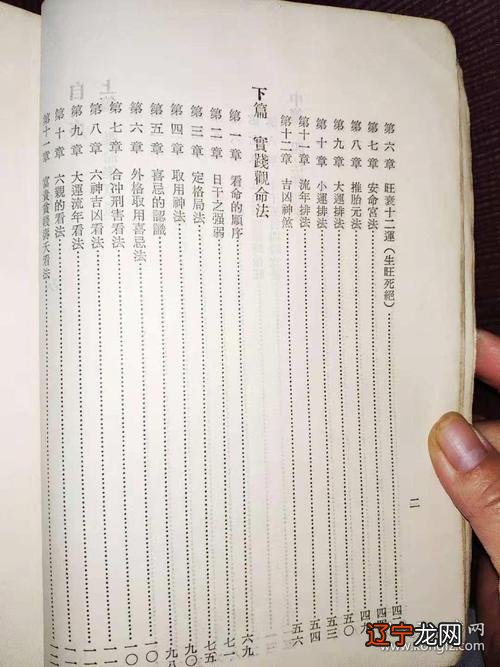 第六章 旺衰十二運（生旺死絕）……四
第七章 安命宮法……四
第八章 推胎元法……四九
第九章 大運排法……五〇
第十章 小運排法……五三
第十一章 流年排法……五四
第十二章 吉凶神煞……五六
下篇 實踐觀命法
第一章 看命的順序……六九
第二章 日干之强弱……七一
第三章 定格局法……七五
第四章 取用神法……九八
第五章 喜忌的認識……一〇
第六章 外格取用喜忌法……一〇
第七章 合冲刑害看法……一〇
第八章 六神吉凶看法……一一
第九章 大運流年看法……一一
第十章 六親的看法……一一
第十一章 富貴貧賤壽夭看法……一一
二
辽宁龙网
网
www.kongfz.com